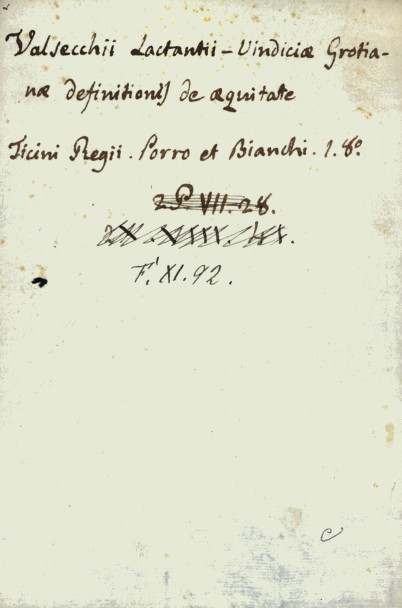 Valsecchii Lactantii - Vindiciæ Grotia-
næ definitionis de æquitate
Ticini Regii. Porro et Bianchi. 1. 8º
2P. VII. 28.
F.' XI. 92.